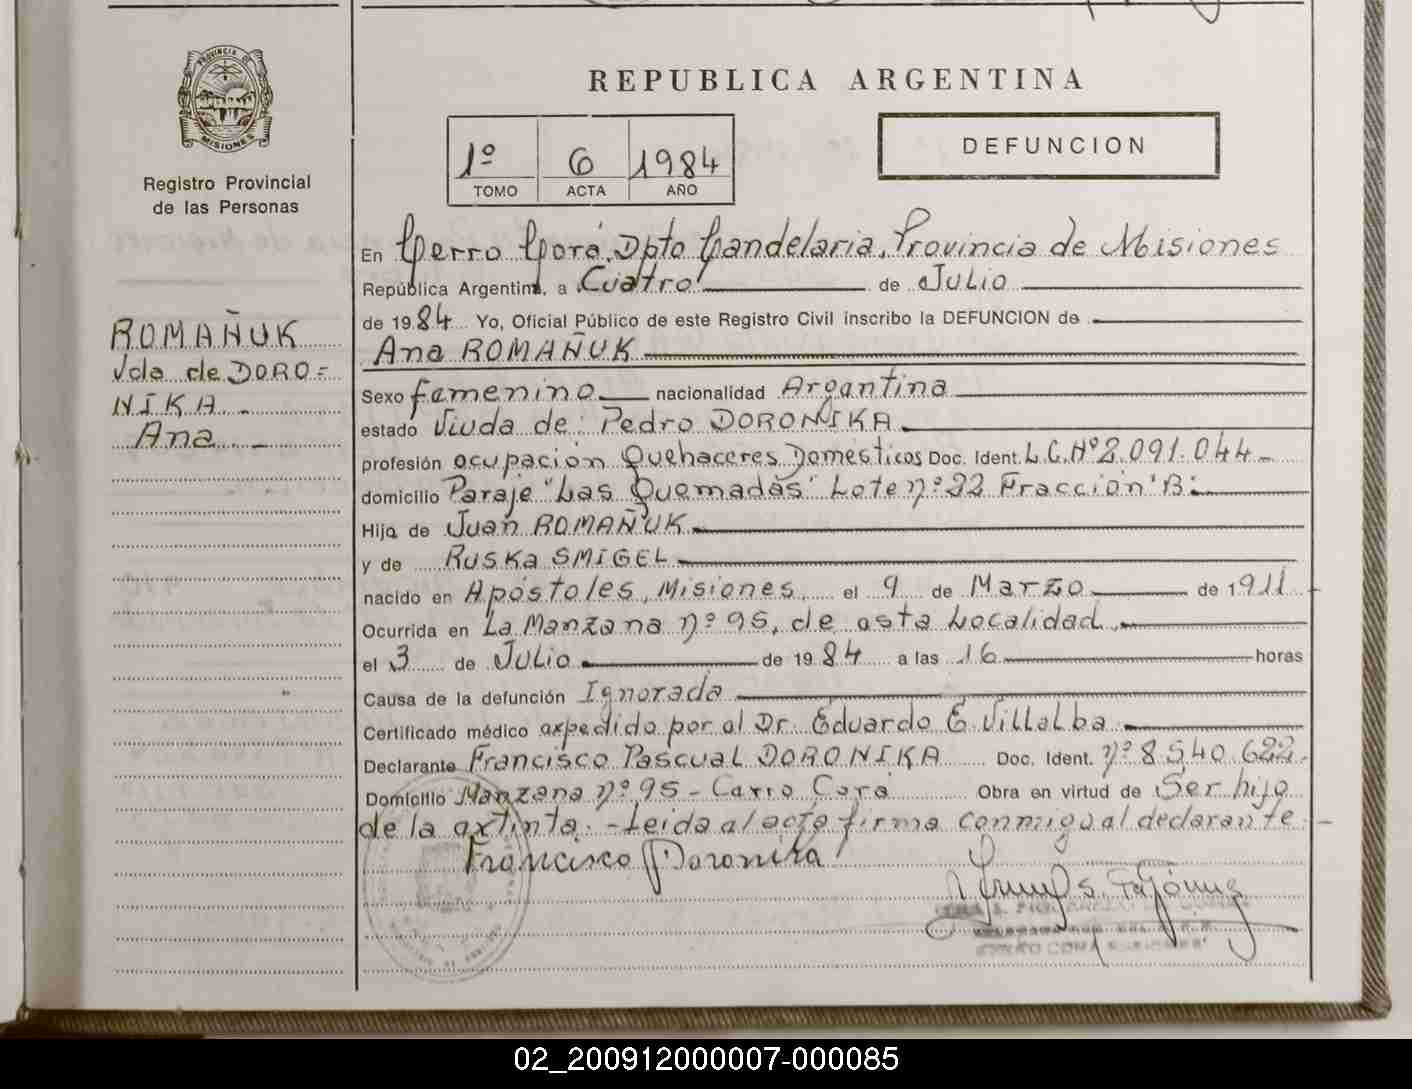 PROVINCIA DE
MISIONES
Registro Provincial
de las Personas
ROMAÑUK
Vda de DORO=
NIKA.-
Ana.-
REPUBLICA ARGENTINA
1º 6 1984
TOMO ACTA AÑO
DEFUNCION
En Cerro Corá, Dpto Candelaria, Provincia de Misiones
República Argentina, a Cuatro de Julio
de 1984 Yo, Oficial Público de este Registro Civil inscribo la DEFUNCION de
Ana ROMAÑUK
Sexo femenino nacionalidad Argentina
estado Viuda de: Pedro DORONIKA
profesión ocupación Quehaceres Domésticos Doc. Ident. L.C.Nº 2.091.044-
domicilio Paraje "Las Quemadas" Lote nº 22 Fracción "B"
Hija de Juan ROMAÑUK
y de Ruska SMIGEL
nacido en Apóstoles, Misiones, el 9 de Marzo de 1911
Ocurrida en La Manzana nº 95, de esta Localidad,
el 3 de Julio de 1984 a las 16 horas
Causa de la defunción Ignorada
Certificado médico expedido por el Dr. Eduardo E. Villalba
Declarante Francisco Pascual DORONIKA Doc. Ident. nº 8.540.622-
Domicilio Manzana nº 95 - Cerro Corá Obra en virtud de Ser hijo
de la extinta.- Leida al acta firma conmigo al declarante.-
Francisco Doronika
02_200912000007-000085